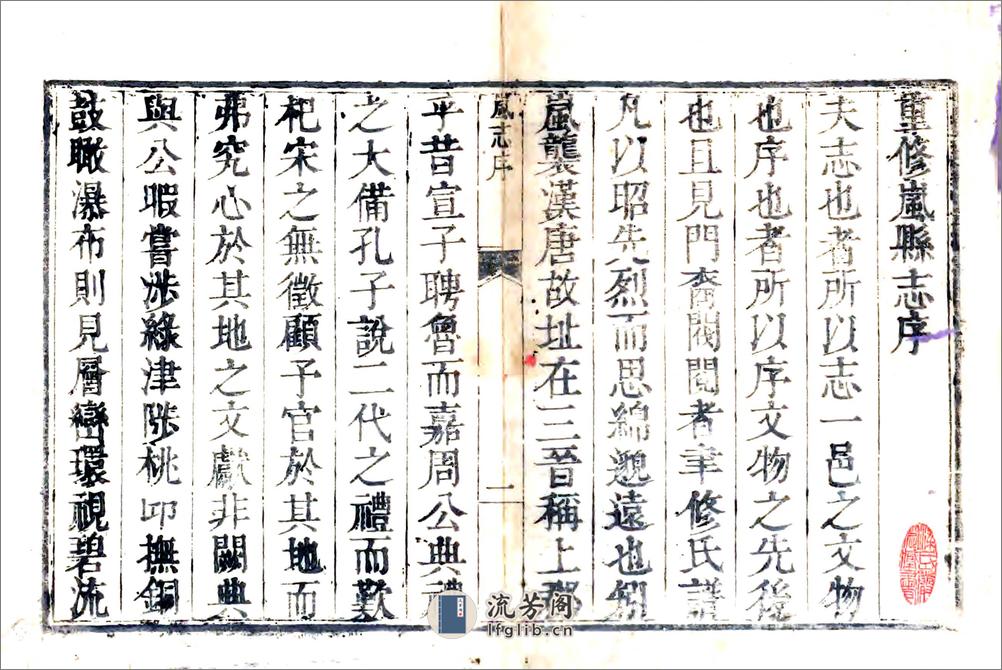 重修嵐縣志序
夫志也者所以志一邑之文物
也序也者所以序文物之先後
也且見門裔閥閱者聿修氏譜
凡以昭先烈而思綿邈遠也矧
嵐襲漢唐故址在三晉稱上郡
嵐志序
二
乎昔宣子聘魯而嘉周公典禮
之大備孔子說二代之禮而歎
杞宋之無徵顧予官於其地而
弗究心於其地之文獻非闕典
與公暇嘗涉綠津陟桃卬撫銅
鼓瞰瀑布則見層巒環視碧流
流芳阁
lfglib.cn